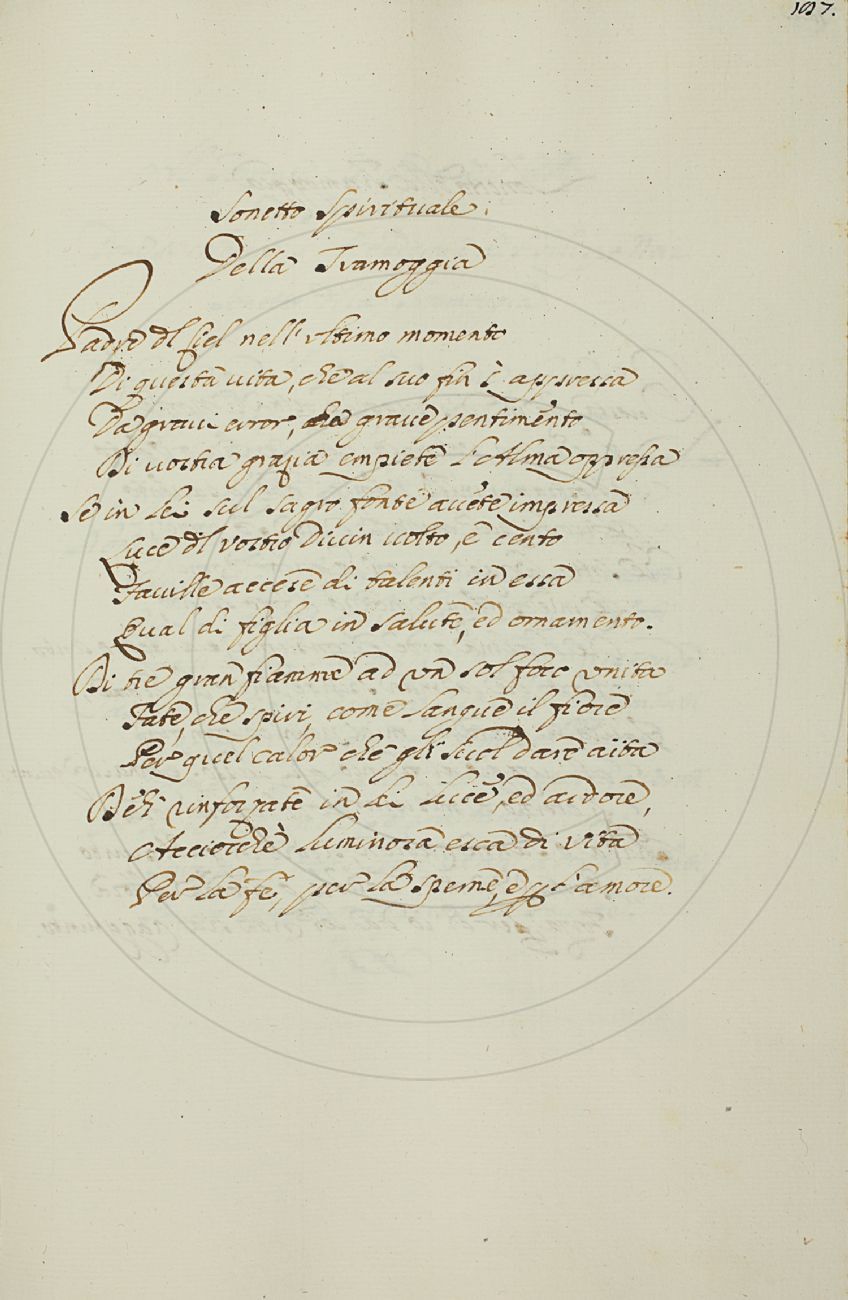 1017.
Sonetto Spirituale.
Della Tramoggia
Padre dl Ciel nell' vltimo momento
Di questa vita, che al suo fin s' appressa
Da gravi error, grave pentimento
Di vostra grazia empiete l'Alma oppressa
Se in lei sul sagro fonte avete impressa
Luce dl vostro Divin volto, e cento
Faville accese di talenti in essa
Qual di figlia in salute, ed ornamento.
Di tre gran fiamme ad vn sol foco vnita
Fate, che spiri, come langue il fiore
Per quel calor che gli suol dare aita
Deh rinforzate in lei luce, ed ardore,
Acciocchè luminosa esca di vita
Per la fe, per la speme, e p l'amore.